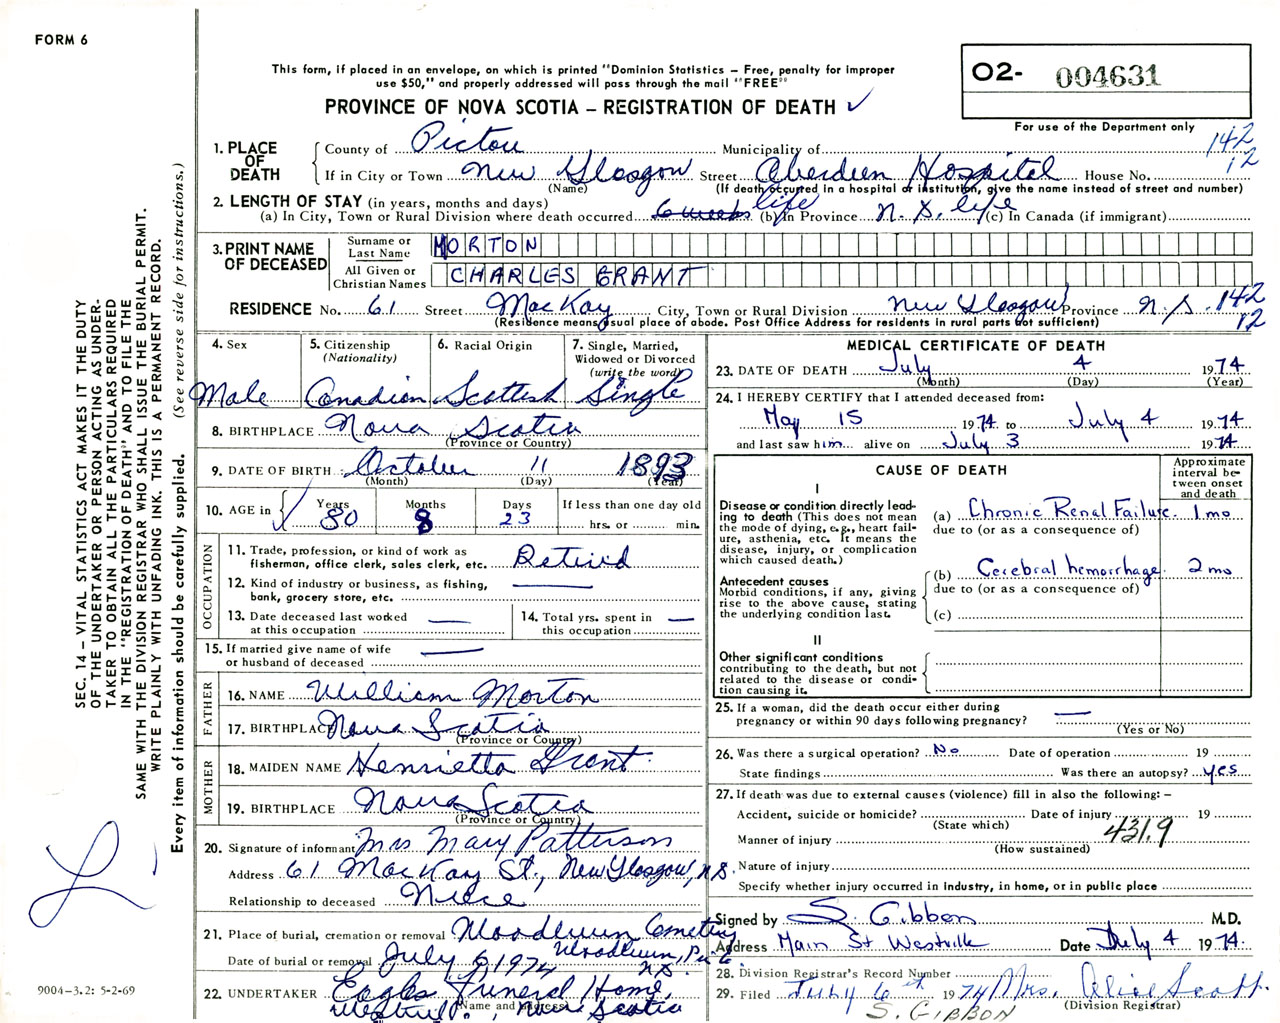 FORM 6
This form, if placed in an envelope, on which is printed "Dominion Statistics – Free, penalty for improper
use $50," and properly addressed will pass through the mail "FREE"
PROVINCE OF NOVA SCOTIA – REGISTRATION OF DEATH ✓
O2- 004631
For use of the Department only
142
12
1. PLACE OF DEATH
County of Pictou Municipality of
If in City or Town New Glasgow Street Aberdeen Hospital House No.
(Name) (If death occurred in a hospital or institution, give the name instead of street and number)
2. LENGTH OF STAY (in years, months and days)
(a) In City, Town or Rural Division where death occurred 6 weeks life (b) In Province N.S. life (c) In Canada (if immigrant)
3. PRINT NAME OF DECEASED
Surname or Last Name MORTON
All Given or Christian Names CHARLES GRANT
RESIDENCE No. 61 Street MacKay City, Town or Rural Division New Glasgow Province N.S. 142
12
(Residence means usual place of abode. Post Office Address for residents in rural parts not sufficient)
4. Sex
Male
5. Citizenship
(Nationality)
Canadian
6. Racial Origin
Scottish
7. Single, Married,
Widowed or Divorced
(write the word)
Single
8. BIRTHPLACE Nova Scotia
(Province or Country)
9. DATE OF BIRTH October 11 1893
(Month) (Day) (Year)
10. AGE in Years Months Days If less than one day old
80 8 23 hrs. or min.
OCCUPATION
11. Trade, profession, or kind of work as
fisherman, office clerk, sales clerk, etc. Retired
12. Kind of industry or business, as fishing,
bank, grocery store, etc.
13. Date deceased last worked
at this occupation
14. Total yrs. spent in
this occupation
15. If married give name of wife
or husband of deceased
FATHER
16. NAME William Morton
17. BIRTHPLACE Nova Scotia
(Province or Country)
MOTHER
18. MAIDEN NAME Henrietta Grant
19. BIRTHPLACE Nova Scotia
(Province or Country)
20. Signature of informant Mrs Mary Patterson
Address 61 MacKay St., New Glasgow, N.S.
Relationship to deceased Niece
21. Place of burial, cremation or removal Woodlawn Cemetery
Woodlawn,
Date of burial or removal July 6 1974 N.S.
22. UNDERTAKER Eagles Funeral Home,
(Name and address)
Westville, Nova Scotia
MEDICAL CERTIFICATE OF DEATH
23. DATE OF DEATH July 4 1974
(Month) (Day) (Year)
24. I HEREBY CERTIFY that I attended deceased from:
May 15 1974 to July 4 1974
and last saw him alive on July 3 1974
CAUSE OF DEATH
Approximate interval between onset and death
I
Disease or condition directly leading
to death (This does not mean
the mode of dying, e.g., heart failure,
asthenia, etc. It means the
disease, injury, or complication
which caused death.)
(a) Chronic Renal Failure. 1 mo
due to (or as a consequence of)
Antecedent causes
Morbid conditions, if any, giving
rise to the above cause, stating
the underlying condition last.
(b) Cerebral hemorrhage. 2 mo
due to (or as a consequence of)
(c)
II
Other significant conditions
contributing to the death, but not
related to the disease or condition
causing it.
25. If a woman, did the death occur either during
pregnancy or within 90 days following pregnancy?
(Yes or No)
26. Was there a surgical operation? No Date of operation 19
State findings Was there an autopsy? yes
27. If death was due to external causes (violence) fill in also the following: –
Accident, suicide or homicide? Date of injury 19
(State which)
431.9
Manner of injury
(How sustained)
Nature of injury
Specify whether injury occurred in industry, in home, or in public place
Signed by S. Gibbon M.D.
Address Main St Westville Date July 4 1974
28. Division Registrar's Record Number
29. Filed July 6th 1974 Mrs. Alice Scott
(Division Registrar)
S. GIBBON
SEC. 14 – VITAL STATISTICS ACT MAKES IT THE DUTY
OF THE UNDERTAKER OR PERSON ACTING AS UNDERTAKER
TO OBTAIN ALL THE PARTICULARS REQUIRED
IN THE "REGISTRATION OF DEATH" AND TO FILE THE
SAME WITH THE DIVISION REGISTRAR WHO SHALL ISSUE THE BURIAL PERMIT.
WRITE PLAINLY WITH UNFADING INK. THIS IS A PERMANENT RECORD.
Every item of information should be carefully supplied. (See reverse side for instructions.)
9004-3.2: 5-2-69